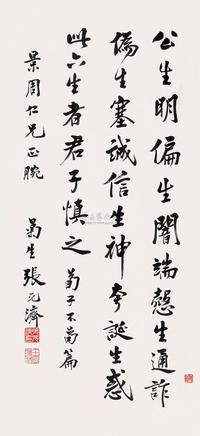 公生明偏生闇端愨生通詐
偽生塞誠信生神夸誕生惑
此六生者君子慎之 荀子不茍篇
景周仁兄正腕
菊生張元濟